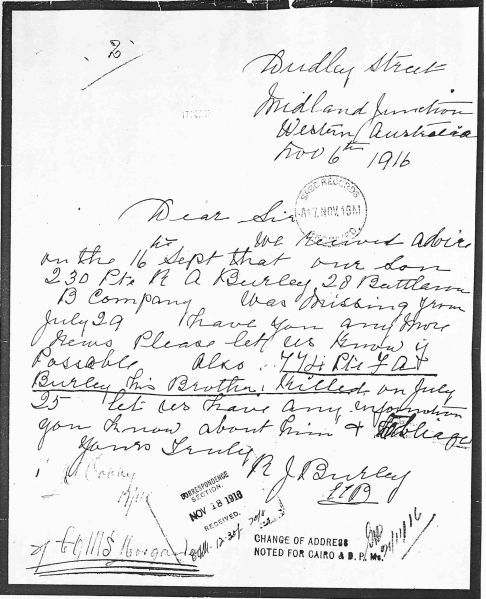 2
Dudley Street
Midland Junction
Western Australia
Nov 6th 1916
Dear Sir
We received advice
on the 16th Sept that our Son
230 Pte R A Burley 28 Battlaion
B Company Was Missing from
July 29 have you any More
News Please let us Know if
Possable also 774 Pte F A T
Burley his Brother, Killed on July
25 let us have any information
you Know about him & obliage
Yours Truly
R J Burley
BASE RECORDS
17 NOV. 1916
CORRESPONDENCE
SECTION.
NOV 18 1916
RECEIVED.
CHANGE OF ADDRESS
NOTED FOR CAIRO & D. P. M.
21/11/16